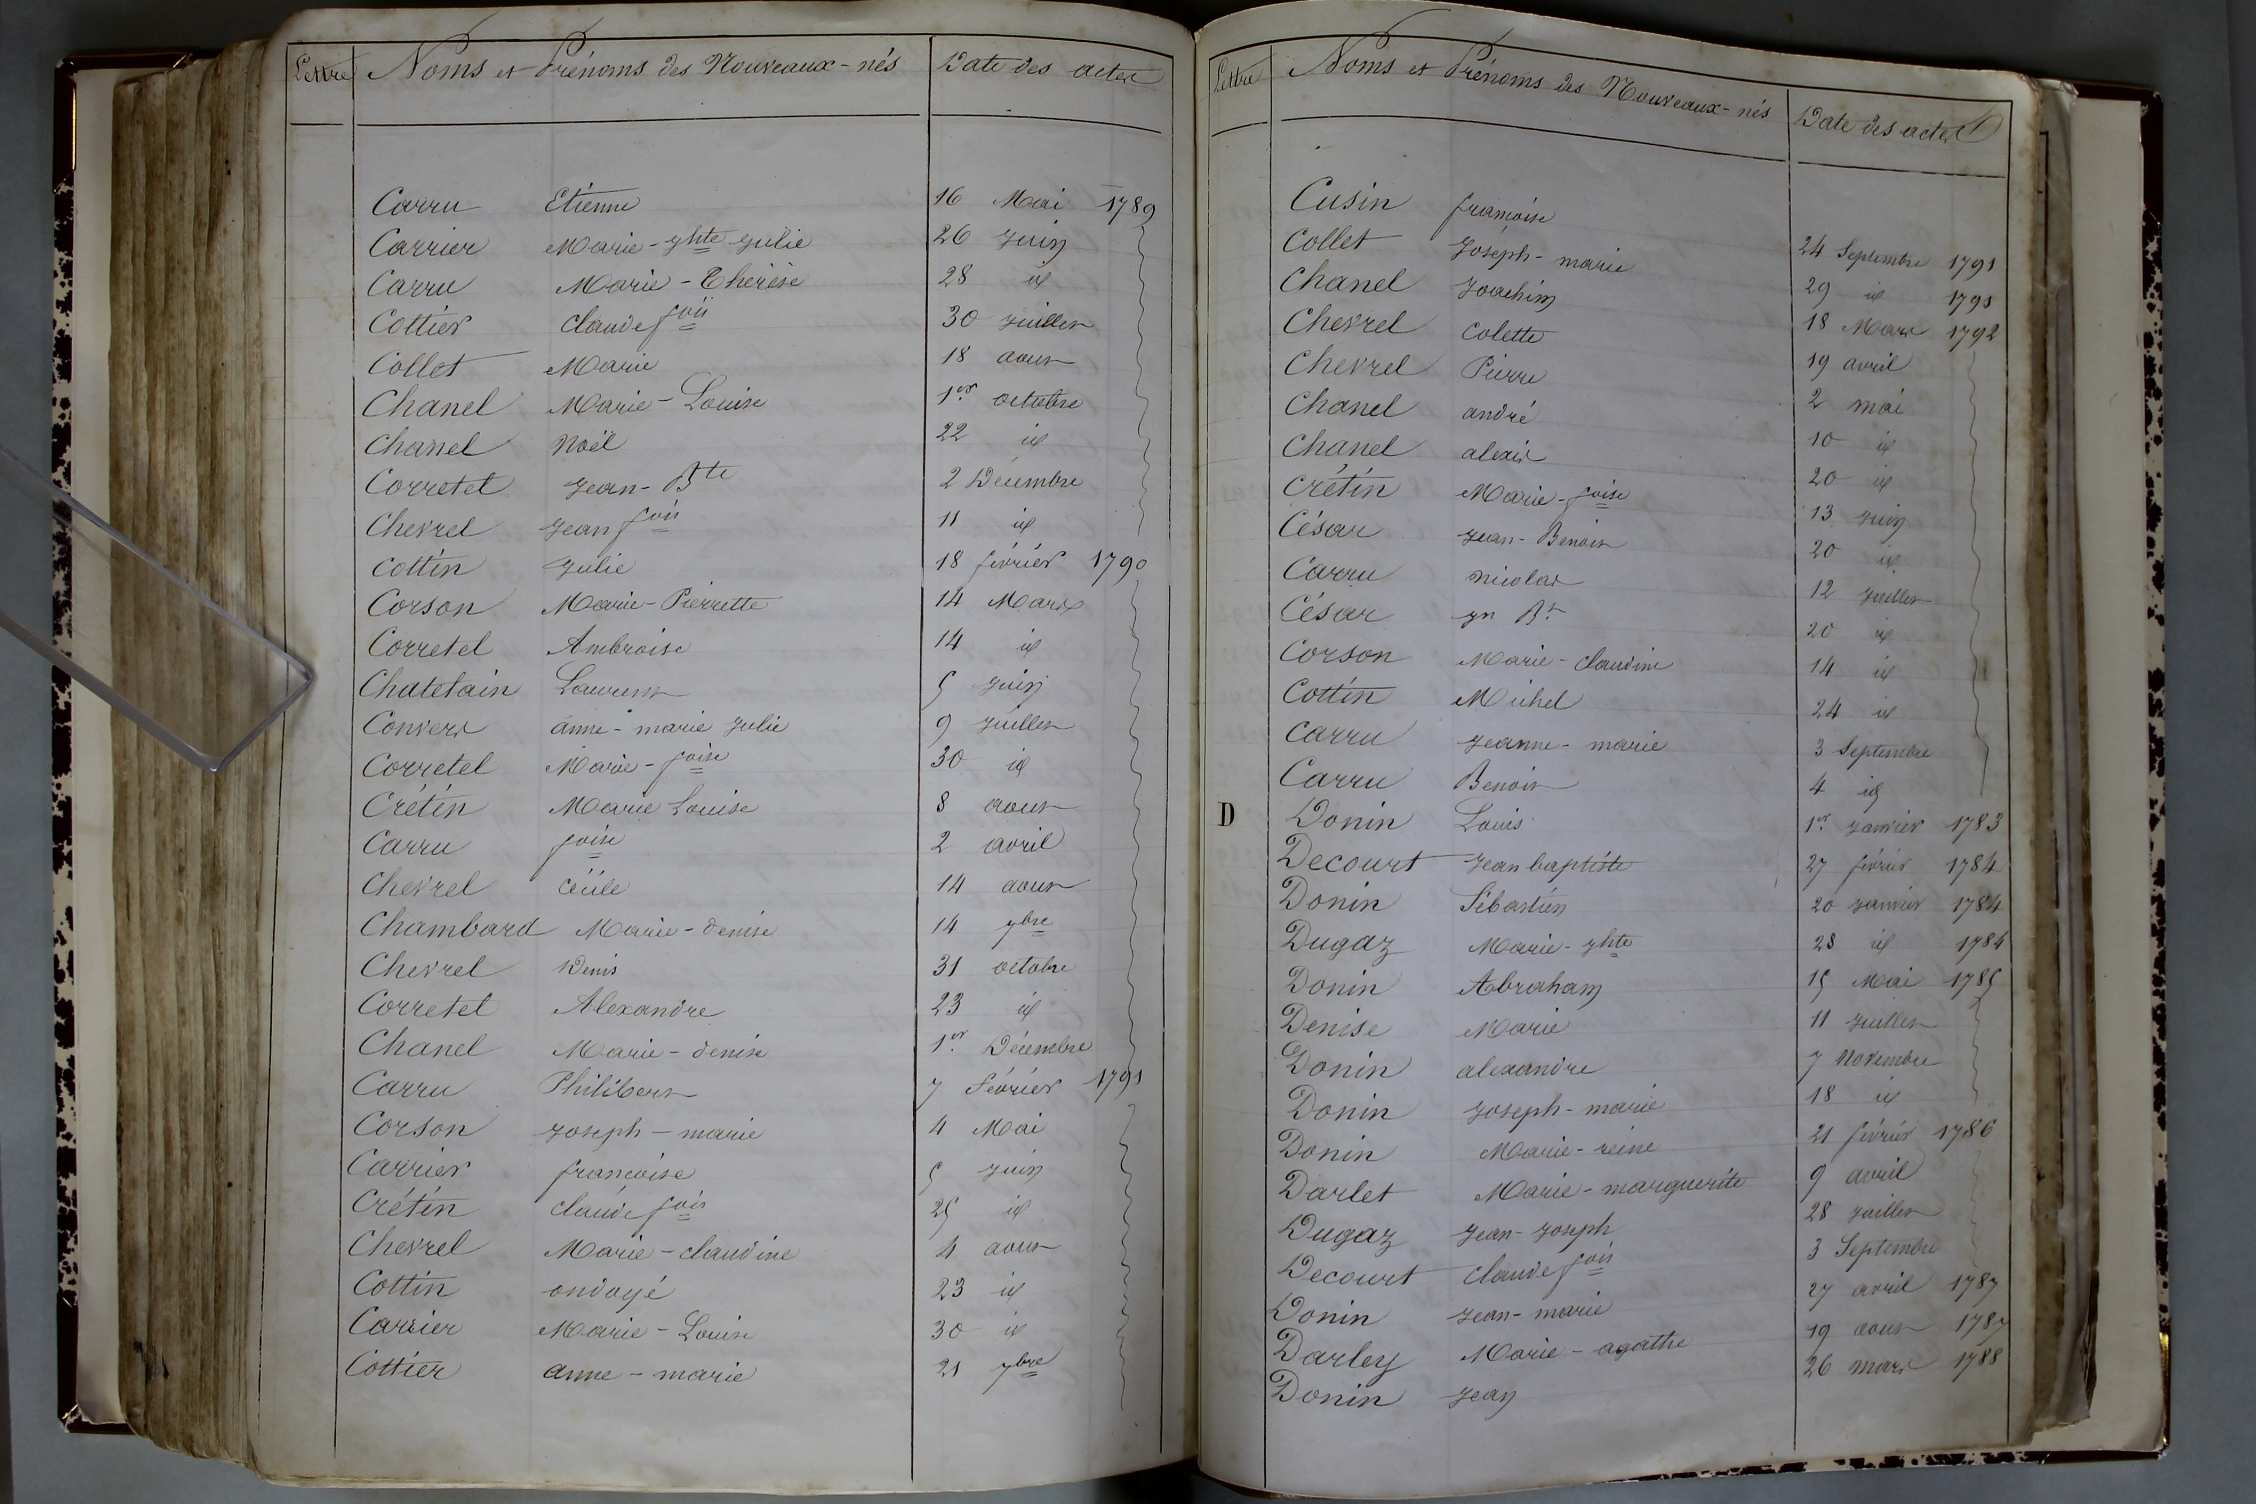 Lettre Noms et Prénoms des Nouveaux-nés Date des actes
Carru Etienne 16 Mai 1789
Carrier Marie-jhte julie 26 juin
Carru Marie-Thérèse 28 id
Cottier claude fois 30 juillet
Collet Marie 18 aout
Chanel Marie-Louise 1er octobre
Chanel Noël 22 id
Corretel Jean-Bte 2 Décembre
Chevrel Jean fois 11 id
Cottin Julie 18 février 1790
Corson Marie-Pierrette 14 Mars
Corretel Ambroise 14 id
Chatelain Laurent 5 juin
Convers anne-marie julie 9 juillet
Corretel Marie-foise 30 id
Crétin Marie Louise 8 aout
Carru foise 2 avril
Chevrel Cécile 14 aout
Chambard Marie-denise 14 7bre
Chevrel Denis 31 octobre
Corretel Alexandre 23 id
Chanel Marie-denise 1er Décembre
Carru Philibert 7 Février 1791
Corson Joseph-marie 4 Mai
Carrier françoise 5 juin
Crétin claude fois 25 id
Chevrel Marie-claudine 4 aout
Cottin ondoyé 23 id
Carrier Marie-Louise 30 id
Cottier anne-marie 21 7bre
Lettre Noms et Prénoms des Nouveaux-nés Date des actes
Cusin françoise 24 Septembre 1791
Collet Joseph-marie 29 id 1791
Chanel Joachim 18 Mars 1792
Chevrel Colette 19 avril
Chevrel Pierre 2 mai
Chanel andré 10 id
Chanel alexis 20 id
Crétin Marie-foise 13 juin
César Jean-Benoit 20 id
Carru nicolas 12 juillet
César jn Bt 20 id
Corson Marie-claudine 14 id
Cottin Michel 24 id
Carru Jeanne-marie 3 Septembre
Carru Benoit 4 id
D Donin Louis 1er janvier 1783
Decourt Jean baptiste 27 février 1784
Donin Sébastien 20 janvier 1784
Dugaz Marie-jhte 28 id 1784
Donin Abraham 15 Mai 1785
Denise Marie 11 juillet
Donin alexandre 7 Novembre
Donin Joseph-marie 18 id
Donin Marie-reine 21 février 1786
Darlet Marie-marguerite 9 avril
Dugaz Jean-Joseph 28 juillet
Decourt claude fois 3 Septembre
Donin Jean-marie 27 avril 1787
Darley Marie-agathe 19 aout 1787
Donin Jean 26 mars 1788